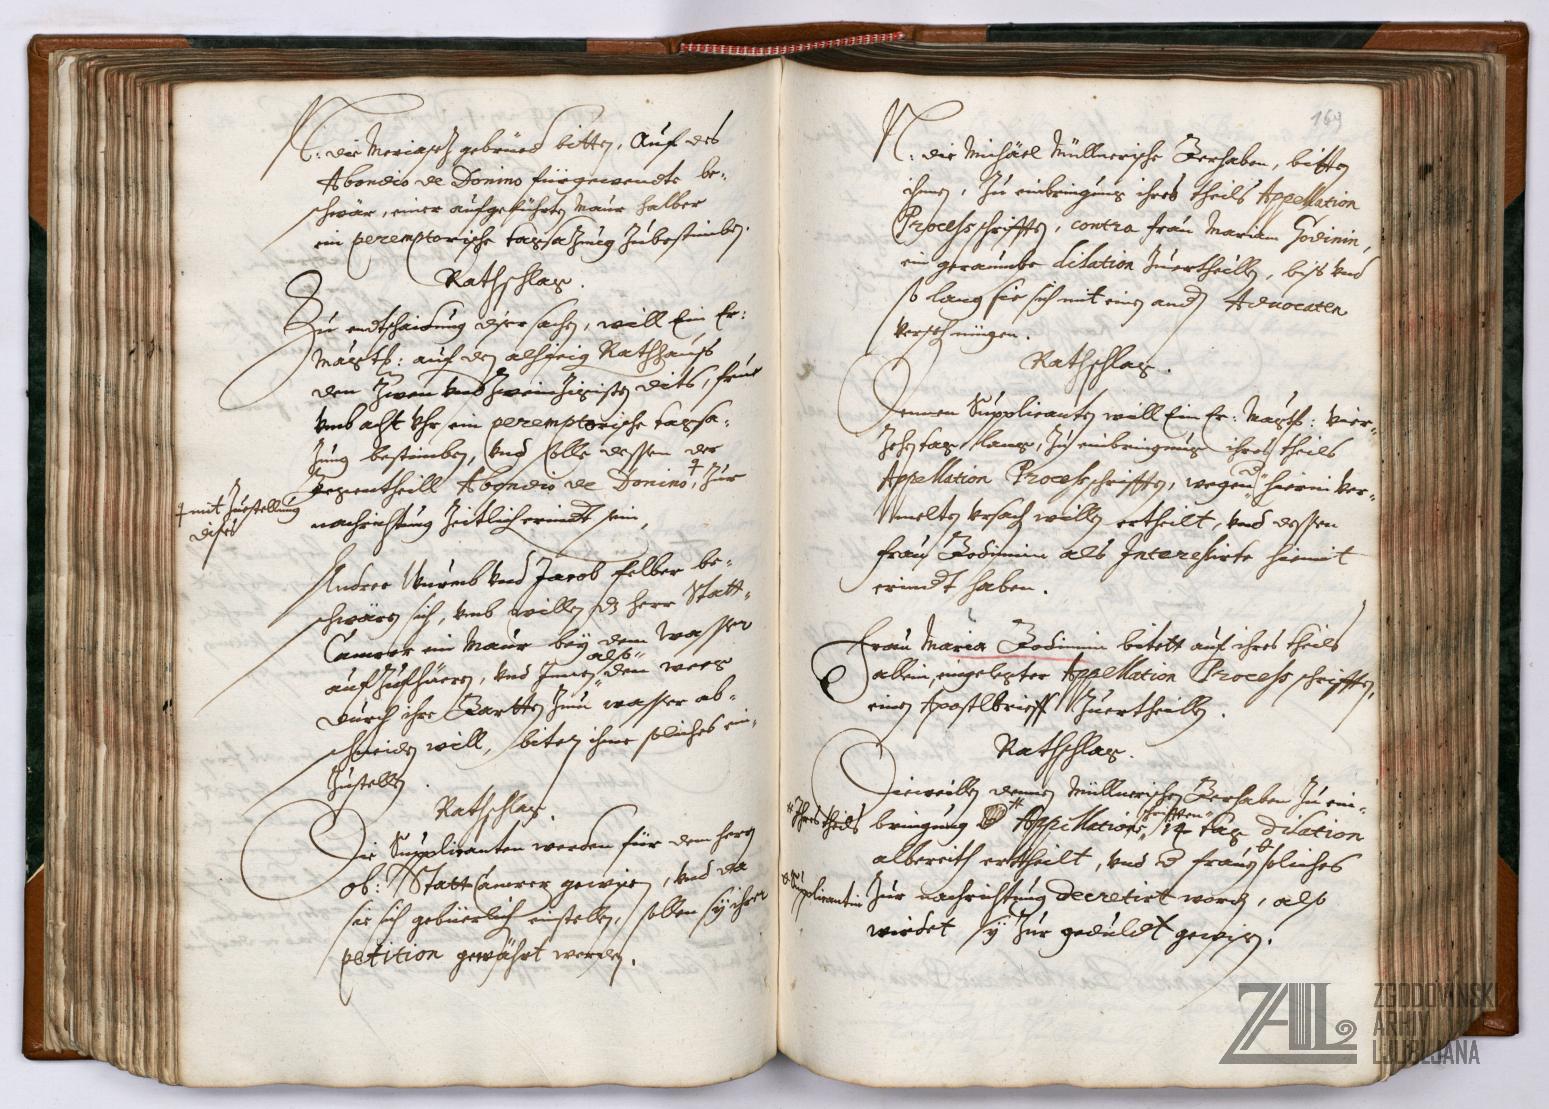 N: die Meriasch gebrüed bitten, Auf des
Abondio de Donino fürgewendte be-
schwär, einer aufgeführten Maur halber
ein peremptorische tagsazung Zubestimben.
Rathschlag.
Zu endtschaidung diser sachen, will Ein Er:
Magts: auf den alhieig Rathhauß
den Zwen und Zweinzigisten dits, frue
umb acht Uhr, ein peremptorische tagsa-
zung bestimben, und solle dessen der
gegentheill Abondio de Donino, † Zur
† mit Zuestellung
dises
nachrichtung Zeitlich erindt sein,
Andree Wurmb und Jacob felber be-
schwären sich, umb willen dz herr Statt-
Camrer ein Maur bey dem Wasser
auf Zufhüeren, und Innen also dem weeg
durch ihre Gartten Zum wasser ab-
schneiden will, biten ihme soliches ein-
Zustellen.
Rathschlag.
Die Supplicanten werden für den herrn
ob: Statt Camrer gewisen, und da
sie sich gebüerlich einstellen, sollen sy ihrer
petition gewährt werden.
169
N: die Michäel Müllnerische Gerhaben, bitten
ihnen, Zu einbringung ihres theils Appellation
Process schrifften, contra frau Mariam Godinin,
ein geraumbe dilation Zuertheillen, biß und
so lang sie sich mit einen andern Advocaten
versehen mügen.
Rathschlag.
Dennen Supplicanten will Ein Er: Magts: vier-
Zehen tag lang, Zu einbringung ihres theils
Appellation Process schrifften, wegen d hierin ver-
melten ursach willen ertheilt, und dessen
frau Godinin als Interessirte hiemit
erindt haben.
Frau Maria Godinin bitett auf ihres theils
alhie, eingelegter Appellation Process schrifften,
einen Apostlbrieff Zuertheillen.
Rathschlag.
Dieweillen dennen Müllnerischen Gerhaben Zu ein-
* Ihres theils bringung * Appellations schrifften 14 tag dilation
albereith ertheilt, und d frauen soliches
Supplicantin Zur nachrichtung decretirt worden, also
wirdet sy Zur gedult gewisen.
ZAL
ZGODOVINSKI
ARHIV
LJUBLJANA